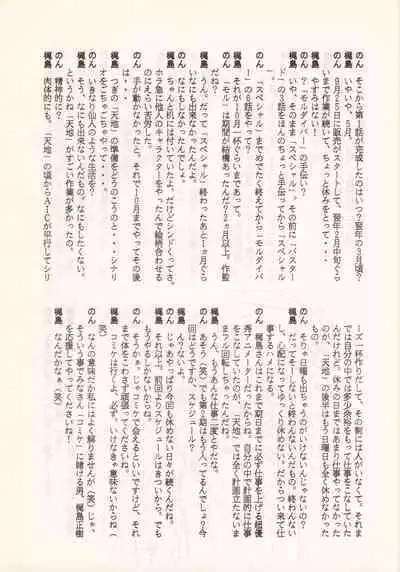 のん　そこから第1話が完成したのはいつ？翌年の3月頃？
梶島　いやいや。
のん　9月25日に発売がスタートして、翌年2月中旬ぐら
いまで作業が続いて、ちょっと休みをとって・・・
梶島　やすみはない！
のん　「モルダイバー」の手伝い？
梶島　いや、そのまま「スペシャル」。その前に「バスター
ド」の3話をほんのちょっと手伝ってから「スペシャル
」。
のん　「スペシャル」までめでたく終えてから「モルダイバ
ー」の6話をやって？
梶島　それが10月一杯ぐらいまであって。
のん　じゃ「モル」は期間が結構あったんだ？2ヵ月以上。作監
だね？
梶島　うん。だって「スペシャル」終わったあと1ヵ月ぐら
いなにも出来なかったんだよ。
のん　なにもしなかったんでしょ。
梶島　ちゃんと机にはむいていたよ、だけどシンドくってさ。
ホラ急に他人のキャラクターをやったんで絵柄合わせる
のにえらい苦労した。
のん　手が動かなかったと、それで10月までやってその後
は・・・。
梶島　つぎの「天地」の準備をどうのこうのと・・・シナリ
オをごちゃごちゃやって・・・。
のん　いきなり仙人のような生活を？
梶島　そう、なにも出来ないんだもの。なにもしたくない。
というかね「天地」がすごい作業が多かったの。
のん　精神的に？
梶島　肉体的にも。「天地」の頃からAICが平行してシリ
ーズ一杯作りだして、その割には人がいなくて。それま
では自分の中では多少余裕をもって仕事をこなしていた
んだけれど。休みの日まではあまり仕事やってなかった
のが、「天地」の後半はもう日曜日も全く休めなかった
もの。
のん　そりゃ日曜も出ちゃうのがいけないんじゃないの？
梶島　だってそうしないと終わんないんだもの。終わんない
し、心配になってゆっくり休めないし。だからつい来て仕
事する（メ）になる。
のん　梶島さんはこれまで期日までに必ず仕事を上げる超優
秀アニメーターだったからね、自分の中で計画的に仕事
をこなしていたのが、「天地」では全く計画立たないま
まフル回転しちゃったんだね。
梶島　うん、もうあんな仕事二度とやだな。
のん　あそう（笑）でも第2期はもう入ってるんでしょ？今
回はどうですか、スケジュール？
梶島　んー、ないよ。
のん　じゃあやっぱり今回も休めない日々が続くんだ。
梶島　それ以上。前回よりスケジュールはきついから。でも
もうやるしかないからね。
のん　そうかぁ。じゃコミケで会えるといいですけど、それ
まで体をこわさず頑張ってくださいね。
梶島　コミケは行くよ。必ず、いけなきゃ意味ないからね（
笑）
のん　なんの意味だか私にはよく解りませんが（笑）じゃ、
そういう事でみなさん「コミケ」に賭ける男、梶島正樹
を応援してやってくださいね！
梶島　なんだかなぁ（笑）